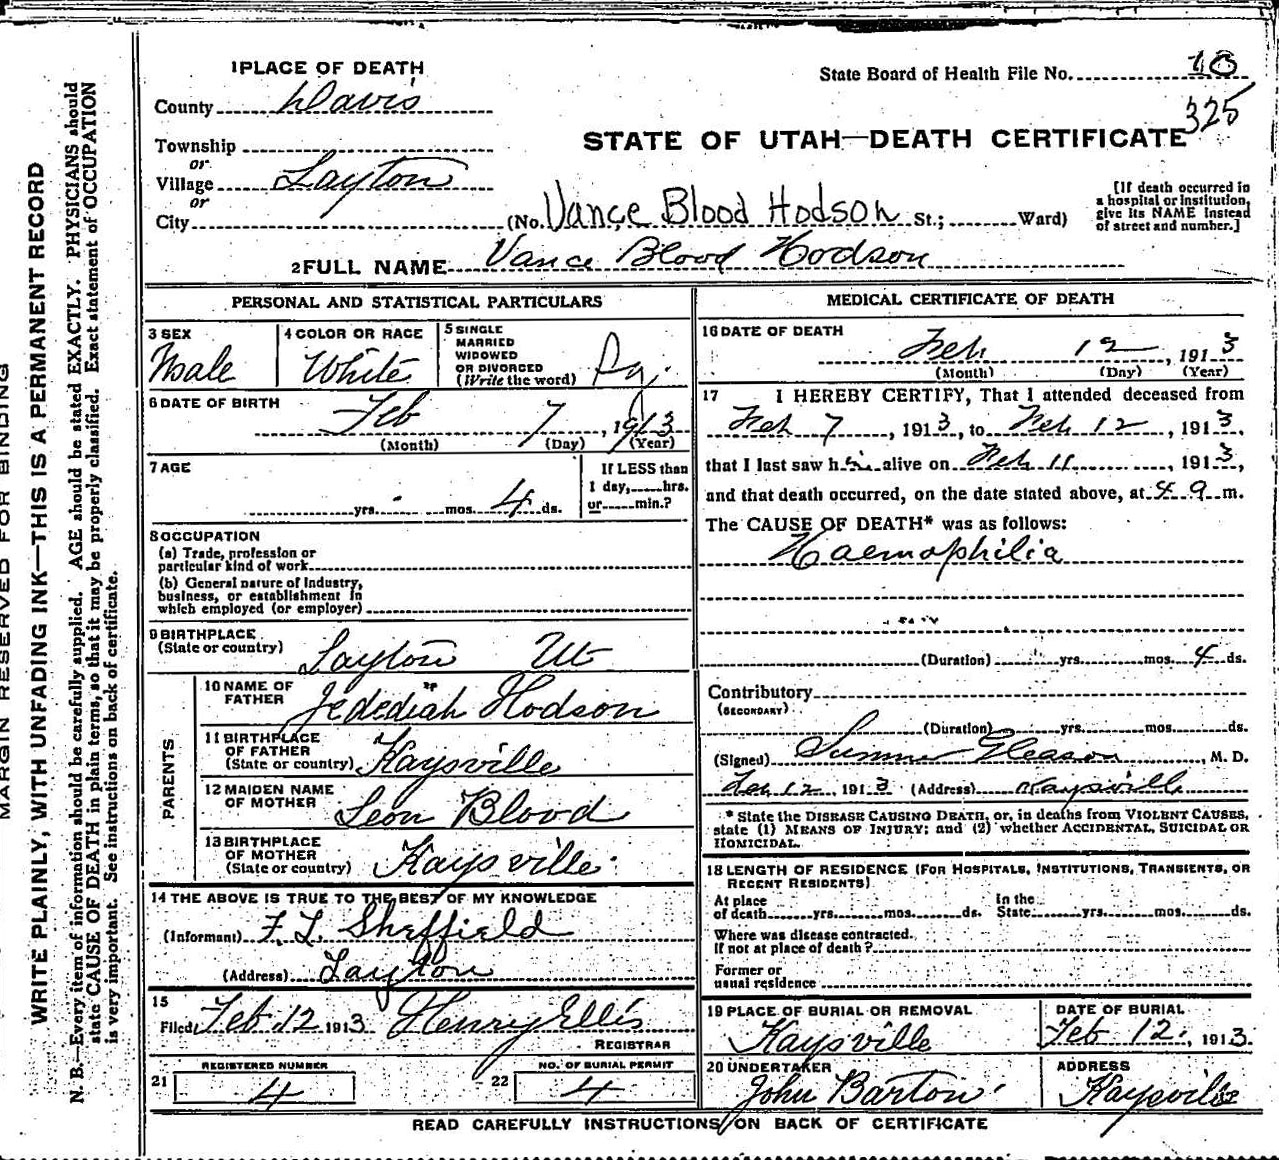 1 PLACE OF DEATH
County Davis
State Board of Health File No. 10
325
Township
or
Village Layton
or
City
STATE OF UTAH—DEATH CERTIFICATE
(No. Vance Blood Hodson St.; Ward)
[If death occurred in
a hospital or institution,
give its NAME instead
of street and number.]
2 FULL NAME Vance Blood Hodson
PERSONAL AND STATISTICAL PARTICULARS
3 SEX
Male
4 COLOR OR RACE
White
5 SINGLE
MARRIED
WIDOWED
OR DIVORCED
(Write the word)
6 DATE OF BIRTH
Feb 7, 1913
(Month) (Day) (Year)
7 AGE
yrs. mos. 4 ds.
If LESS than
1 day, hrs.
or min.?
8 OCCUPATION
(a) Trade, profession or
particular kind of work
(b) General nature of Industry,
business, or establishment in
which employed (or employer)
9 BIRTHPLACE
(State or country) Layton Ut
PARENTS
10 NAME OF
FATHER Jedediah Hodson
11 BIRTHPLACE
OF FATHER
(State or country) Kaysville
12 MAIDEN NAME
OF MOTHER Leon Blood
13 BIRTHPLACE
OF MOTHER
(State or country) Kaysville
14 THE ABOVE IS TRUE TO THE BEST OF MY KNOWLEDGE
(Informant) F. L. Sheffield
(Address) Layton
15
Filed Feb 12 1913 Henry Ellis
REGISTRAR
REGISTERED NUMBER
21 4
NO. OF BURIAL PERMIT
22 4
MEDICAL CERTIFICATE OF DEATH
16 DATE OF DEATH
Feb 12, 1913
(Month) (Day) (Year)
17 I HEREBY CERTIFY, That I attended deceased from
Feb 7, 1913, to Feb 12, 1913,
that I last saw h alive on Feb 11, 1913,
and that death occurred, on the date stated above, at m.
The CAUSE OF DEATH* was as follows:
Haemophilia
(Duration) yrs. mos. 4 ds.
Contributory
(SECONDARY)
(Duration) yrs. mos. ds.
(Signed) Sumner Gleason, M. D.
Feb 12, 1913 (Address) Kaysville
* State the DISEASE CAUSING DEATH, or, in deaths from VIOLENT CAUSES,
state (1) MEANS OF INJURY; and (2) whether ACCIDENTAL, SUICIDAL OR
HOMICIDAL.
18 LENGTH OF RESIDENCE (FOR HOSPITALS, INSTITUTIONS, TRANSIENTS, OR
RECENT RESIDENTS)
At place
of death yrs. mos. ds.
In the
State yrs. mos. ds.
Where was disease contracted.
If not at place of death?
Former or
usual residence
19 PLACE OF BURIAL OR REMOVAL
Kaysville
DATE OF BURIAL
Feb 12, 1913.
20 UNDERTAKER
John Barton
ADDRESS
Kaysville
READ CAREFULLY INSTRUCTIONS ON BACK OF CERTIFICATE
MARGIN RESERVED FOR BINDING
WRITE PLAINLY, WITH UNFADING INK—THIS IS A PERMANENT RECORD
N. B.—Every item of information should be carefully supplied. AGE should be stated EXACTLY. PHYSICIANS should
state CAUSE OF DEATH in plain terms, so that it may be properly classified. Exact statement of OCCUPATION
is very important. See instructions on back of certificate.